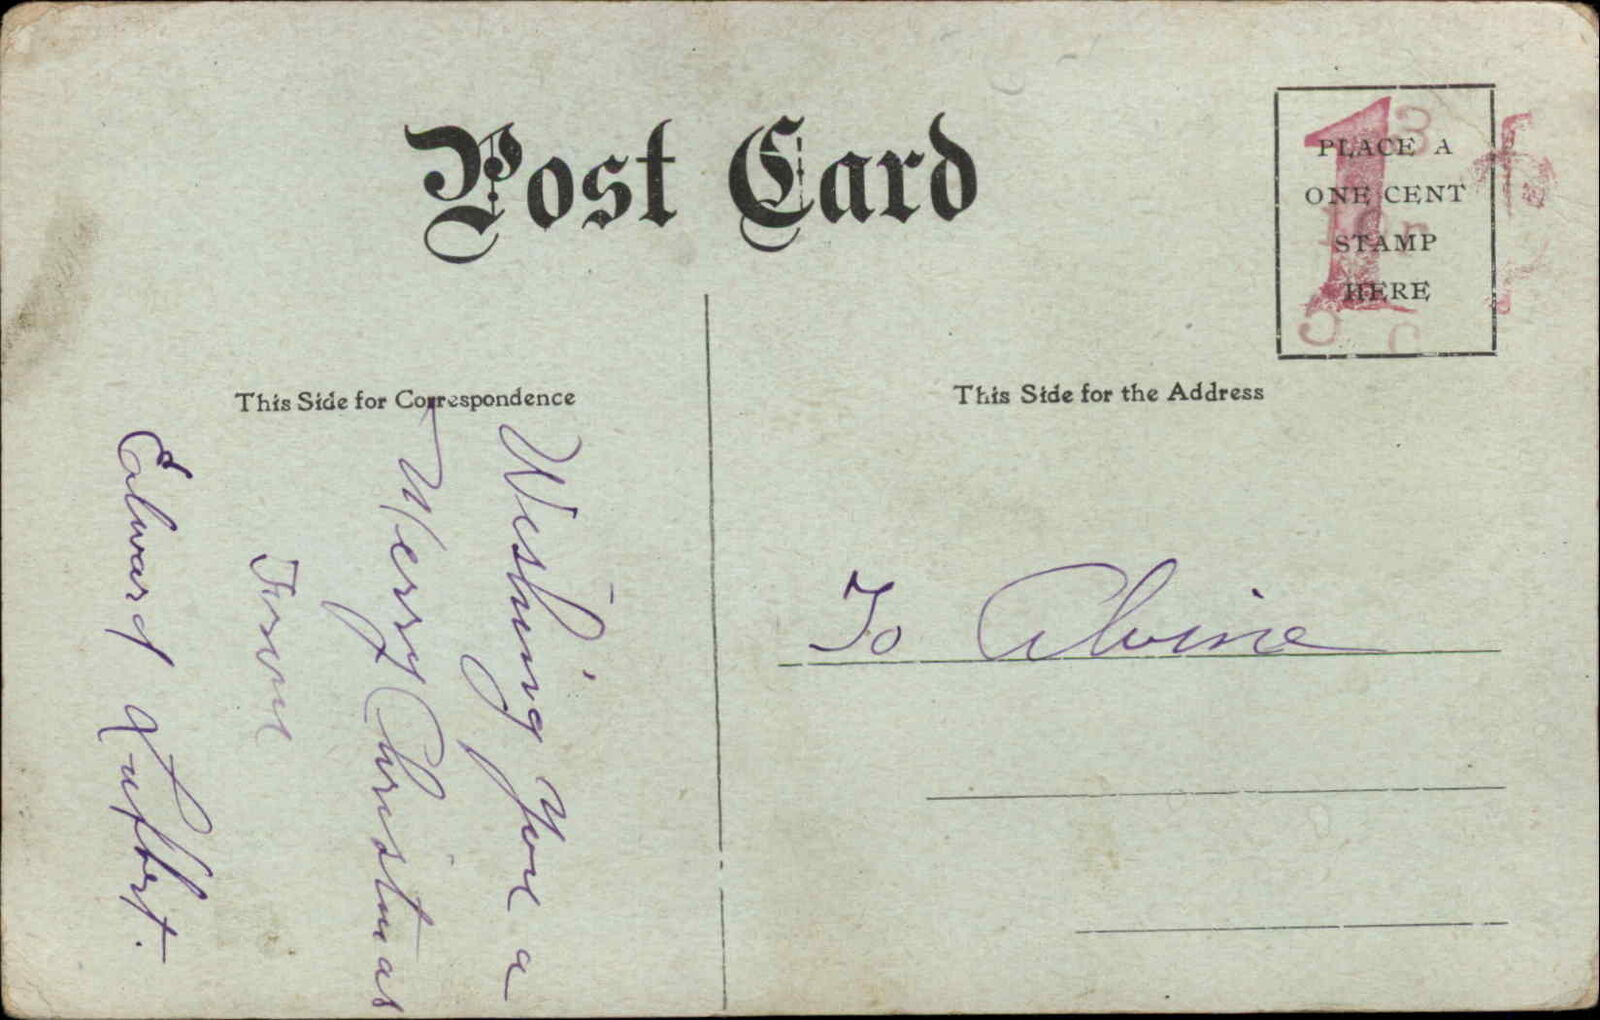 Post Card
PLACE A
ONE CENT
STAMP
HERE
1
This Side for Correspondence
This Side for the Address
Wishing You a
Merry Christmas
From
Edward
To Alvine